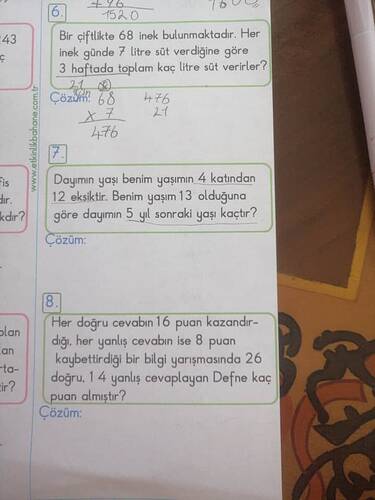 1520
6.
Bir çiftlikte 68 inek bulunmaktadır. Her
inek günde 7 litre süt verdiğine göre
3 haftada toplam kaç litre süt verirler?
21
gün
Çözüm: 68 476
x 7 21
476
7.
Dayımın yaşı benim yaşımın 4 katından
12 eksiktir. Benim yaşım 13 olduğuna
göre dayımın 5 yıl sonraki yaşı kaçtır?
Çözüm:
8.
Her doğru cevabın 16 puan kazandır-
dığı, her yanlış cevabın ise 8 puan
kaybettirdiği bir bilgi yarışmasında 26
doğru, 1 4 yanlış cevaplayan Defne kaç
puan almıştır?
Çözüm:
www.etkinlikbahane.com.tr
243
kdır?